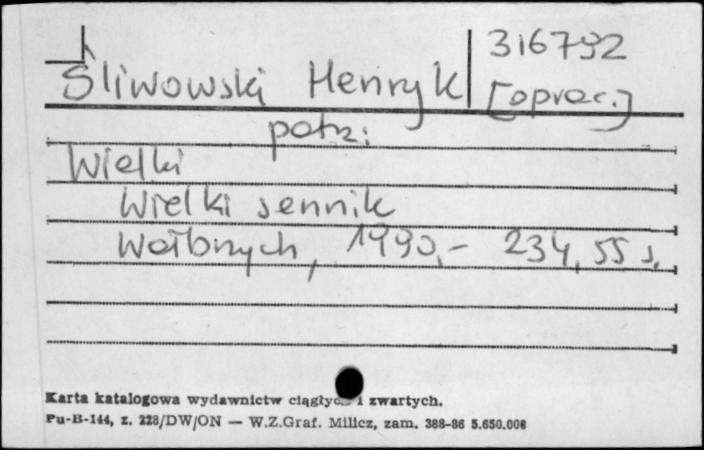 316792
Śliwowski Henryk [oprac.]
patrz:
Wielki
Wielki sennik
Wałbrzych, 1990.- 234, 55 s.
Karta katalogowa wydawnictw ciągłych i zwartych.
Pu-B-144, z. 228/DW/ON — W.Z.Graf. Milicz, zam. 388-86 5.650.000